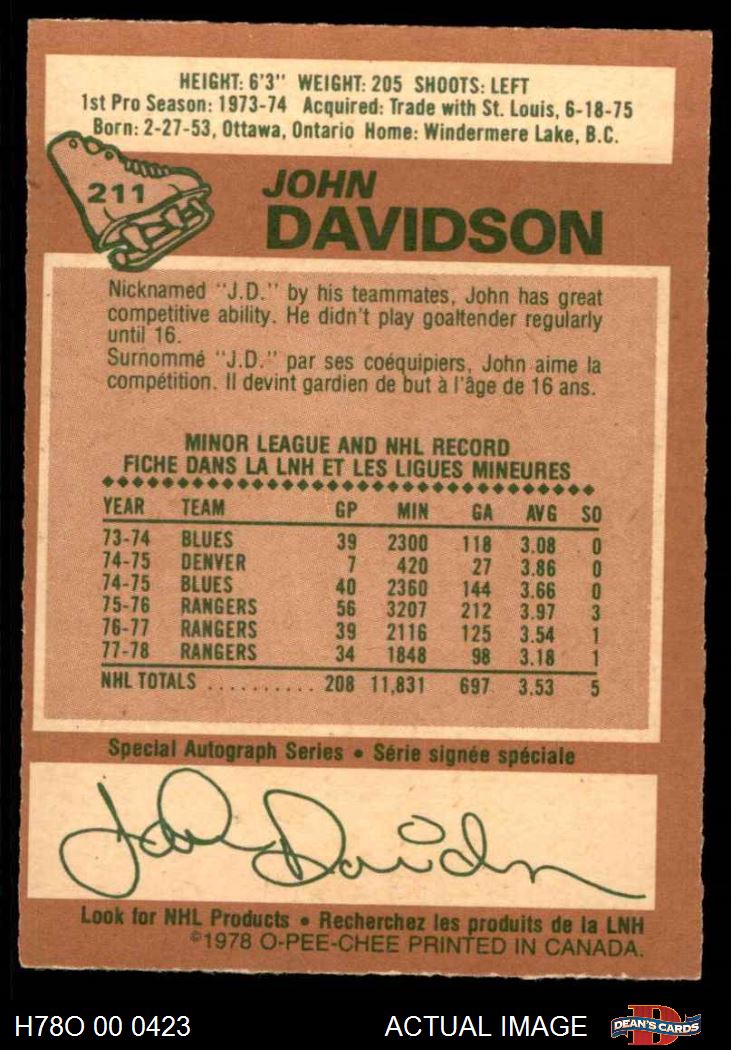 HEIGHT: 6'3" WEIGHT: 205 SHOOTS: LEFT
1st Pro Season: 1973-74 Acquired: Trade with St. Louis, 6-18-75
Born: 2-27-53, Ottawa, Ontario Home: Windermere Lake, B.C.
211
JOHN
DAVIDSON
Nicknamed "J.D." by his teammates, John has great
competitive ability. He didn't play goaltender regularly
until 16.
Surnommé "J.D." par ses coéquipiers, John aime la
compétition. Il devint gardien de but à l'âge de 16 ans.
MINOR LEAGUE AND NHL RECORD
FICHE DANS LA LNH ET LES LIGUES MINEURES
YEAR TEAM GP MIN GA AVG SO
73-74 BLUES 39 2300 118 3.08 0
74-75 DENVER 7 420 27 3.86 0
74-75 BLUES 40 2360 144 3.66 0
75-76 RANGERS 56 3207 212 3.97 3
76-77 RANGERS 39 2116 125 3.54 1
77-78 RANGERS 34 1848 98 3.18 1
NHL TOTALS .......... 208 11,831 697 3.53 5
Special Autograph Series • Série signée spéciale
John Davidson
Look for NHL Products • Recherchez les produits de la LNH
©1978 O-PEE-CHEE PRINTED IN CANADA.
H78O 00 0423 ACTUAL IMAGE DEAN'S CARDS